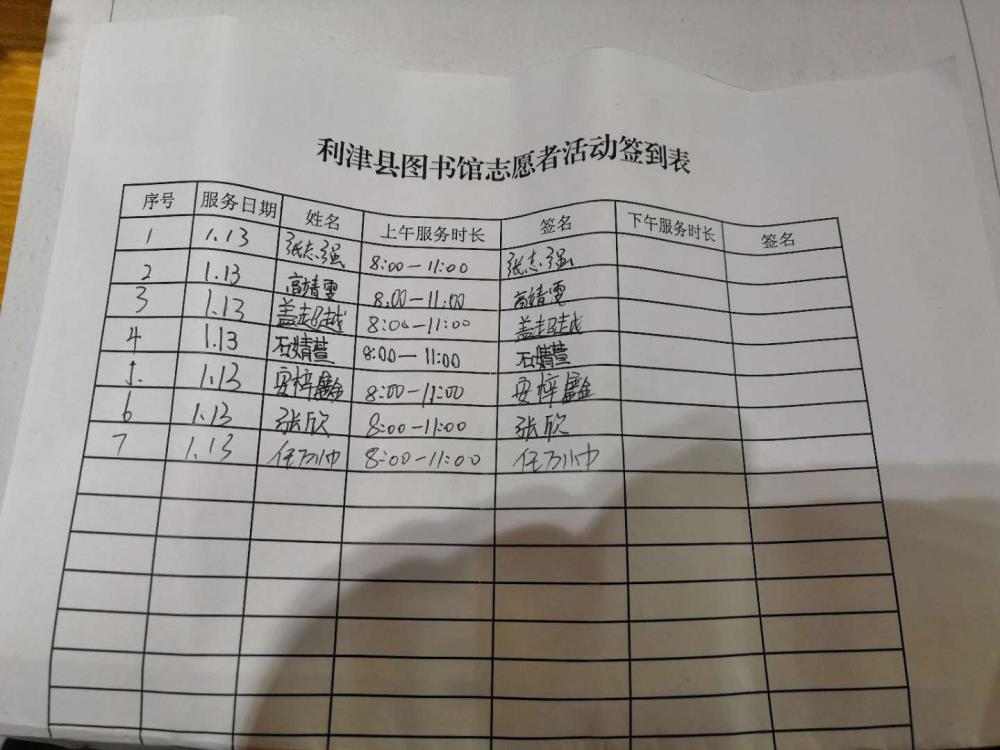 利津县图书馆志愿者活动签到表
序号 服务日期 姓名 上午服务时长 签名 下午服务时长 签名
1 1.13 张志强 8:00-11:00 张志强
2 1.13 高婧雯 8:00-11:00 高婧雯
3 1.13 盖超越 8:00-11:00 盖超越
4 1.13 石婧萱 8:00-11:00 石婧萱
5. 1.13 安梓鑫 8:00-11:00 安梓鑫
6 1.13 张欣 8:00-11:00 张欣
7 1.13 任万帅 8:00-11:00 任万帅